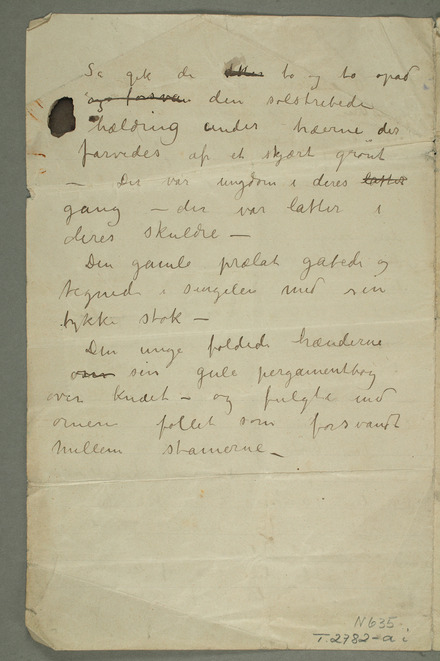 Så gik de ~~atter~~ to og to opad
~~og forsvan~~ den solstribede
hældning under træerne der
farvedes af et skjært grønt
— Det var ungdom i deres ~~latter~~
gang — der var latter i
deres skuldre —
Den gamle prælat gabede og
tegnede i singelen med sin
tykke stok —
Den unge foldede hænderne
~~om~~ sin gule pergamentbog
over knæet — og fulgte med
øinene følget som forsvandt
mellem stammerne —
N 635
T.2782-a i